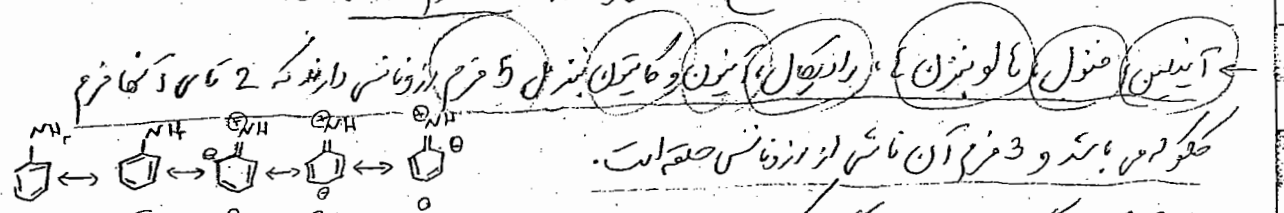 ← آنیلین، فنول، هالوبنزن ها، رادیکال، آنیون و کاتیون بنزیل 5 فرم رزونانسی دارند که 2 تای آنها فرم
ککوله می باشد و 3 فرم آن ناشی از رزونانس حلقه است.
NH₂ ↔ NH ↔ ⊕NH ⊖ ↔ ⊕NH ⊖ ↔ ⊕NH ⊖